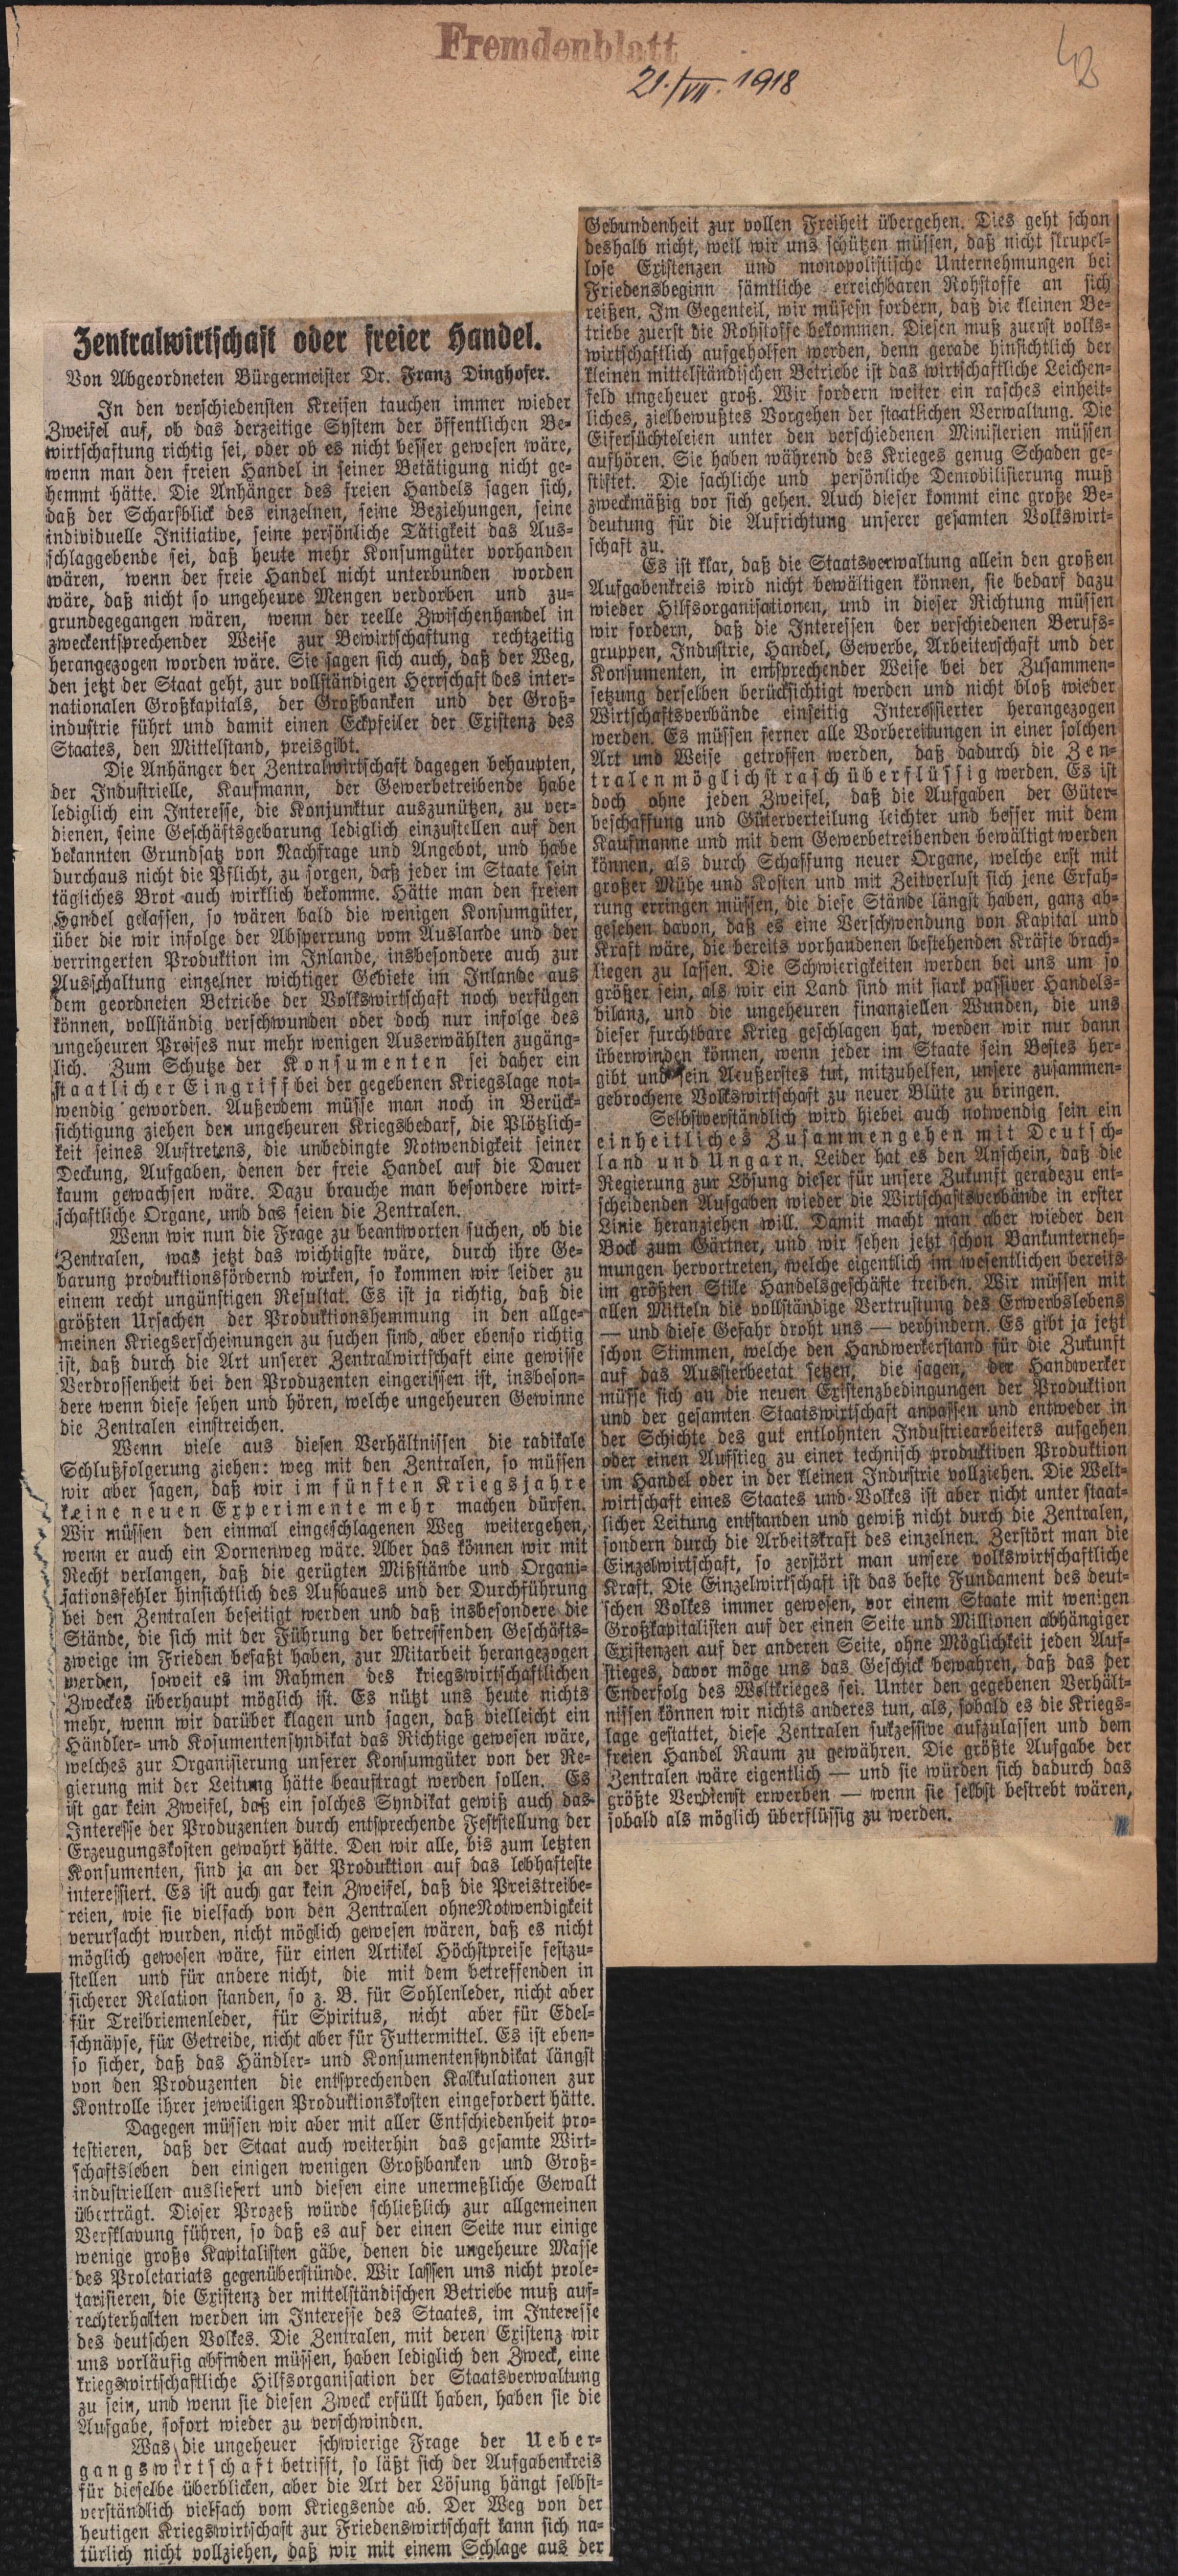 Fremdenblatt
21./VII. 1918
42
Zentralwirtschaft oder freier Handel.
Von Abgeordneten Bürgermeister Dr. Franz Dinghofer.
In den verschiedensten Kreisen tauchen immer wieder
Zweifel auf, ob das derzeitige System der öffentlichen Be-
wirtschaftung richtig sei, oder ob es nicht besser gewesen wäre,
wenn man den freien Handel in seiner Betätigung nicht ge-
hemmt hätte. Die Anhänger des freien Handels sagen sich,
daß der Scharfblick des einzelnen, seine Beziehungen, seine
individuelle Initiative, seine persönliche Tätigkeit das Aus-
schlaggebende sei, daß heute mehr Konsumgüter vorhanden
wären, wenn der freie Handel nicht unterbunden worden
wäre, daß nicht so ungeheure Mengen verdorben und zu-
grundegegangen wären, wenn der reelle Zwischenhandel in
zweckentsprechender Weise zur Bewirtschaftung rechtzeitig
herangezogen worden wäre. Sie sagen sich auch, daß der Weg,
den jetzt der Staat geht, zur vollständigen Herrschaft des inter-
nationalen Großkapitals, der Großbanken und der Groß-
industrie führt und damit einen Eckpfeiler der Existenz des
Staates, den Mittelstand, preisgibt.
Die Anhänger der Zentralwirtschaft dagegen behaupten,
der Industrielle, Kaufmann, der Gewerbetreibende habe
lediglich ein Interesse, die Konjunktur auszunützen, zu ver-
dienen, seine Geschäftsgebarung lediglich einzustellen auf den
bekannten Grundsatz von Nachfrage und Angebot, und habe
durchaus nicht die Pflicht, zu sorgen, daß jeder im Staate sein
tägliches Brot auch wirklich bekomme. Hätte man den freien
Handel gelassen, so wären bald die wenigen Konsumgüter,
über die wir infolge der Absperrung vom Auslande und der
verringerten Produktion im Inlande, insbesondere auch zur
Ausschaltung einzelner wichtiger Gebiete im Inlande aus
dem geordneten Betriebe der Volkswirtschaft noch verfügen
können, vollständig verschwunden oder doch nur infolge des
ungeheuren Preises nur mehr wenigen Auserwählten zugäng-
lich. Zum Schutze der Konsumenten sei daher ein
staatlicher Eingriff bei der gegebenen Kriegslage not-
wendig geworden. Außerdem müsse man noch in Berück-
sichtigung ziehen den ungeheuren Kriegsbedarf, die Plötzlich-
keit seines Auftretens, die unbedingte Notwendigkeit seiner
Deckung, Aufgaben, denen der freie Handel auf die Dauer
kaum gewachsen wäre. Dazu brauche man besondere wirt-
schaftliche Organe, und das seien die Zentralen.
Wenn wir nun die Frage zu beantworten suchen, ob die
Zentralen, was jetzt das wichtigste wäre, durch ihre Ge-
barung produktionsfördernd wirken, so kommen wir leider zu
einem recht ungünstigen Resultat. Es ist ja richtig, daß die
größten Ursachen der Produktionshemmung in den allge-
meinen Kriegserscheinungen zu suchen sind, aber ebenso richtig
ist, daß durch die Art unserer Zentralwirtschaft eine gewisse
Verdrossenheit bei den Produzenten eingerissen ist, insbeson-
dere wenn diese sehen und hören, welche ungeheuren Gewinne
die Zentralen einstreichen.
Wenn viele aus diesen Verhältnissen die radikale
Schlußfolgerung ziehen: weg mit den Zentralen, so müssen
wir aber sagen, daß wir im fünften Kriegsjahre
keine neuen Experimente mehr machen dürfen.
Wir müssen den einmal eingeschlagenen Weg weitergehen,
wenn er auch ein Dornenweg wäre. Aber das können wir mit
Recht verlangen, daß die gerügten Mißstände und Organi-
sationsfehler hinsichtlich des Aufbaues und der Durchführung
bei den Zentralen beseitigt werden und daß insbesondere die
Stände, die sich mit der Führung der betreffenden Geschäfts-
zweige im Frieden befaßt haben, zur Mitarbeit herangezogen
werden, soweit es im Rahmen des kriegswirtschaftlichen
Zweckes überhaupt möglich ist. Es nützt uns heute nichts
mehr, wenn wir darüber klagen und sagen, daß vielleicht ein
Händler- und Kosumentensyndikat das Richtige gewesen wäre,
welches zur Organisierung unserer Konsumgüter von der Re-
gierung mit der Leitung hätte beauftragt werden sollen. Es
ist gar kein Zweifel, daß ein solches Syndikat gewiß auch das
Interesse der Produzenten durch entsprechende Feststellung der
Erzeugungskosten gewahrt hätte. Den wir alle, bis zum letzten
Konsumenten, sind ja an der Produktion auf das lebhafteste
interessiert. Es ist auch gar kein Zweifel, daß die Preistreibe-
reien, wie sie vielfach von den Zentralen ohne Notwendigkeit
verursacht wurden, nicht möglich gewesen wären, daß es nicht
möglich gewesen wäre, für einen Artikel Höchstpreise festzu-
stellen und für andere nicht, die mit dem betreffenden in
sicherer Relation standen, so z. B. für Sohlenleder, nicht aber
für Treibriemenleder, für Spiritus, nicht aber für Edel-
schnäpse, für Getreide, nicht aber für Futtermittel. Es ist eben-
so sicher, daß das Händler- und Konsumentensyndikat längst
von den Produzenten die entsprechenden Kalkulationen zur
Kontrolle ihrer jeweiligen Produktionskosten eingefordert hätte.
Dagegen müssen wir aber mit aller Entschiedenheit pro-
testieren, daß der Staat auch weiterhin das gesamte Wirt-
schaftsleben den einigen wenigen Großbanken und Groß-
industriellen ausliefert und diesen eine unermeßliche Gewalt
überträgt. Dieser Prozeß würde schließlich zur allgemeinen
Versklavung führen, so daß es auf der einen Seite nur einige
wenige große Kapitalisten gäbe, denen die ungeheure Masse
des Proletariats gegenüberstünde. Wir lassen uns nicht prole-
tarisieren, die Existenz der mittelständischen Betriebe muß auf-
rechterhalten werden im Interesse des Staates, im Interesse
des deutschen Volkes. Die Zentralen, mit deren Existenz wir
uns vorläufig abfinden müssen, haben lediglich den Zweck, eine
kriegswirtschaftliche Hilfsorganisation der Staatsverwaltung
zu sein, und wenn sie diesen Zweck erfüllt haben, haben sie die
Aufgabe, sofort wieder zu verschwinden.
Was die ungeheuer schwierige Frage der Ueber-
gangswirtschaft betrifft, so läßt sich der Aufgabenkreis
für dieselbe überblicken, aber die Art der Lösung hängt selbst-
verständlich vielfach vom Kriegsende ab. Der Weg von der
heutigen Kriegswirtschaft zur Friedenswirtschaft kann sich na-
türlich nicht vollziehen, daß wir mit einem Schlage aus der
Gebundenheit zur vollen Freiheit übergehen. Dies geht schon
deshalb nicht, weil wir uns schützen müssen, daß nicht skrupel-
lose Existenzen und monopolistische Unternehmungen bei
Friedensbeginn sämtliche erreichbaren Rohstoffe an sich
reißen. Im Gegenteil, wir müsesn fordern, daß die kleinen Be-
triebe zuerst die Rohstoffe bekommen. Diesen muß zuerst volks-
wirtschaftlich aufgeholfen werden, denn gerade hinsichtlich der
kleinen mittelständischen Betriebe ist das wirtschaftliche Leichen-
feld ungeheuer groß. Wir fordern weiter ein rasches einheit-
liches, zielbewußtes Vorgehen der staatlichen Verwaltung. Die
Eifersüchteleien unter den verschiedenen Ministerien müssen
aufhören. Sie haben während des Krieges genug Schaden ge-
stiftet. Die sachliche und persönliche Demobilisierung muß
zweckmäßig vor sich gehen. Auch dieser kommt eine große Be-
deutung für die Aufrichtung unserer gesamten Volkswirt-
schaft zu.
Es ist klar, daß die Staatsverwaltung allein den großen
Aufgabenkreis wird nicht bewältigen können, sie bedarf dazu
wieder Hilfsorganisationen, und in dieser Richtung müssen
wir fordern, daß die Interessen der verschiedenen Berufs-
gruppen, Industrie, Handel, Gewerbe, Arbeiterschaft und der
Konsumenten, in entsprechender Weise bei der Zusammen-
setzung derselben berücksichtigt werden und nicht bloß wieder
Wirtschaftsverbände einseitig Interessierter herangezogen
werden. Es müssen ferner alle Vorbereitungen in einer solchen
Art und Weise getroffen werden, daß dadurch die Zen-
tralen möglichst rasch überflüssig werden. Es ist
doch ohne jeden Zweifel, daß die Aufgaben der Güter-
beschaffung und Güterverteilung leichter und besser mit dem
Kaufmanne und mit dem Gewerbetreibenden bewältigt werden
können, als durch Schaffung neuer Organe, welche erst mit
großer Mühe und Kosten und mit Zeitverlust sich jene Erfah-
rung erringen müssen, die diese Stände längst haben, ganz ab-
gesehen davon, daß es eine Verschwendung von Kapital und
Kraft wäre, die bereits vorhandenen bestehenden Kräfte brach-
liegen zu lassen. Die Schwierigkeiten werden bei uns um so
größer sein, als wir ein Land sind mit stark passiver Handels-
bilanz, und die ungeheuren finanziellen Wunden, die uns
dieser furchtbare Krieg geschlagen hat, werden wir nur dann
überwinden können, wenn jeder im Staate sein Bestes her-
gibt und sein Aeußerstes tut, mitzuhelfen, unsere zusammen-
gebrochene Volkswirtschaft zu neuer Blüte zu bringen.
Selbstverständlich wird hiebei auch notwendig sein ein
einheitliches Zusammengehen mit Deutsch-
land und Ungarn. Leider hat es den Anschein, daß die
Regierung zur Lösung dieser für unsere Zukunft geradezu ent-
scheidenden Aufgaben wieder die Wirtschaftsverbände in erster
Linie heranziehen will. Damit macht man aber wieder den
Bock zum Gärtner, und wir sehen jetzt schon Bankunterneh-
mungen hervortreten, welche eigentlich im wesentlichen bereits
im größten Stile Handelsgeschäfte treiben. Wir müssen mit
allen Mitteln die vollständige Vertrustung des Erwerbslebens
— und diese Gefahr droht uns — verhindern. Es gibt ja jetzt
schon Stimmen, welche den Handwerkerstand für die Zukunft
auf das Aussterbeetat setzen, die sagen, der Handwerker
müsse sich an die neuen Existenzbedingungen der Produktion
und der gesamten Staatswirtschaft anpassen und entweder in
der Schichte des gut entlohnten Industriearbeiters aufgehen
oder einen Aufstieg zu einer technisch produktiven Produktion
im Handel oder in der kleinen Industrie vollziehen. Die Welt-
wirtschaft eines Staates und Volkes ist aber nicht unter staat-
licher Leitung entstanden und gewiß nicht durch die Zentralen,
sondern durch die Arbeitskraft des einzelnen. Zerstört man die
Einzelwirtschaft, so zerstört man unsere volkswirtschaftliche
Kraft. Die Einzelwirtschaft ist das beste Fundament des deut-
schen Volkes immer gewesen, vor einem Staate mit wenigen
Großkapitalisten auf der einen Seite und Millionen abhängiger
Existenzen auf der anderen Seite, ohne Möglichkeit jeden Auf-
stieges, davor möge uns das Geschick bewahren, daß das der
Enderfolg des Weltkrieges sei. Unter den gegebenen Verhält-
nissen können wir nichts anderes tun, als, sobald es die Kriegs-
lage gestattet, diese Zentralen sukzessive aufzulassen und dem
freien Handel Raum zu gewähren. Die größte Aufgabe der
Zentralen wäre eigentlich — und sie würden sich dadurch das
größte Verdienst erwerben — wenn sie selbst bestrebt wären,
sobald als möglich überflüssig zu werden.